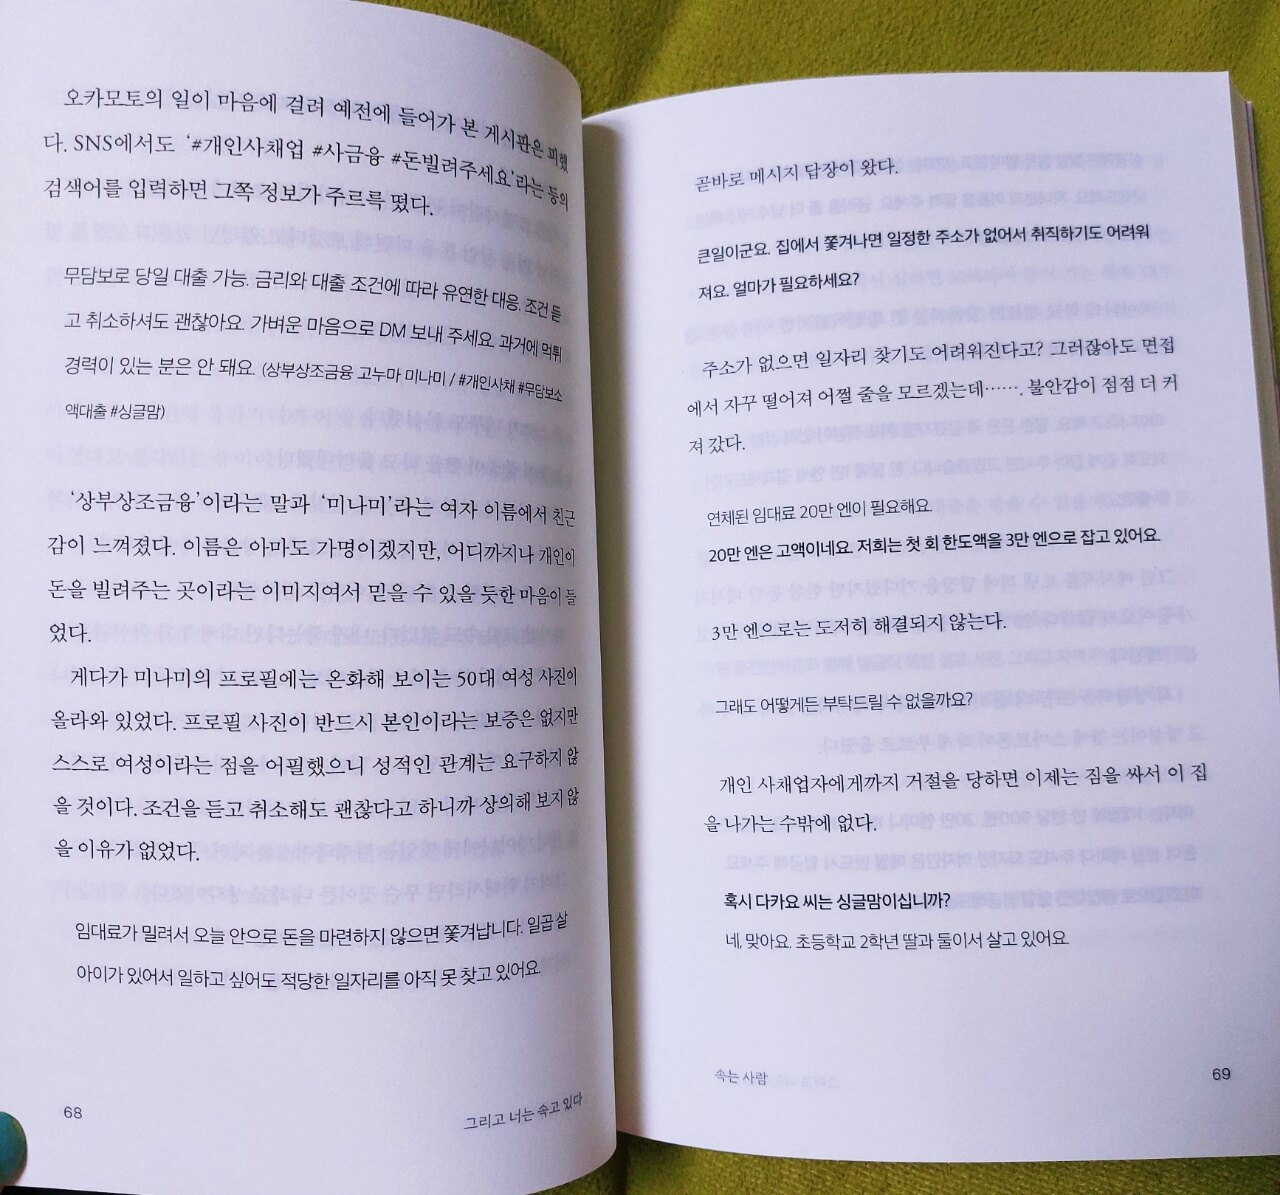 오카모토의 일이 마음에 걸려 예전에 들어가 본 게시판은 피했
다. SNS에서도 ‘#개인사채업 #사금융 #돈빌려주세요’라는 등의
검색어를 입력하면 그쪽 정보가 주르륵 떴다.
무담보로 당일 대출 가능. 금리와 대출 조건에 따라 유연한 대응. 조건 듣
고 취소하셔도 괜찮아요. 가벼운 마음으로 DM 보내 주세요. 과거에 먹튀
경력이 있는 분은 안 돼요. (상부상조금융 고누마 미나미 / #개인사채 #무담보소
액대출 #싱글맘)
‘상부상조금융’이라는 말과 ‘미나미’라는 여자 이름에서 친근
감이 느껴졌다. 이름은 아마도 가명이겠지만, 어디까지나 개인이
돈을 빌려주는 곳이라는 이미지여서 믿을 수 있을 듯한 마음이 들
었다.
게다가 미나미의 프로필에는 온화해 보이는 50대 여성 사진이
올라와 있었다. 프로필 사진이 반드시 본인이라는 보증은 없지만
스스로 여성이라는 점을 어필했으니 성적인 관계는 요구하지 않
을 것이다. 조건을 듣고 취소해도 괜찮다고 하니까 상의해 보지 않
을 이유가 없었다.
임대료가 밀려서 오늘 안으로 돈을 마련하지 않으면 쫓겨납니다. 일곱 살
아이가 있어서 일하고 싶어도 적당한 일자리를 아직 못 찾고 있어요.
68
그리고 너는 속고 있다
곧바로 메시지 답장이 왔다.
큰일이군요. 집에서 쫓겨나면 일정한 주소가 없어서 취직하기도 어려워
져요. 얼마가 필요하세요?
주소가 없으면 일자리 찾기도 어려워진다고? 그러잖아도 면접
에서 자꾸 떨어져 어쩔 줄을 모르겠는데……. 불안감이 점점 더 커
져 갔다.
연체된 임대료 20만 엔이 필요해요.
20만 엔은 고액이네요. 저희는 첫 회 한도액을 3만 엔으로 잡고 있어요.
3만 엔으로는 도저히 해결되지 않는다.
그래도 어떻게든 부탁드릴 수 없을까요?
개인 사채업자에게까지 거절을 당하면 이제는 짐을 싸서 이 집
을 나가는 수밖에 없다.
혹시 다카요 씨는 싱글맘이십니까?
네, 맞아요. 초등학교 2학년 딸과 둘이서 살고 있어요.
속는 사람
69